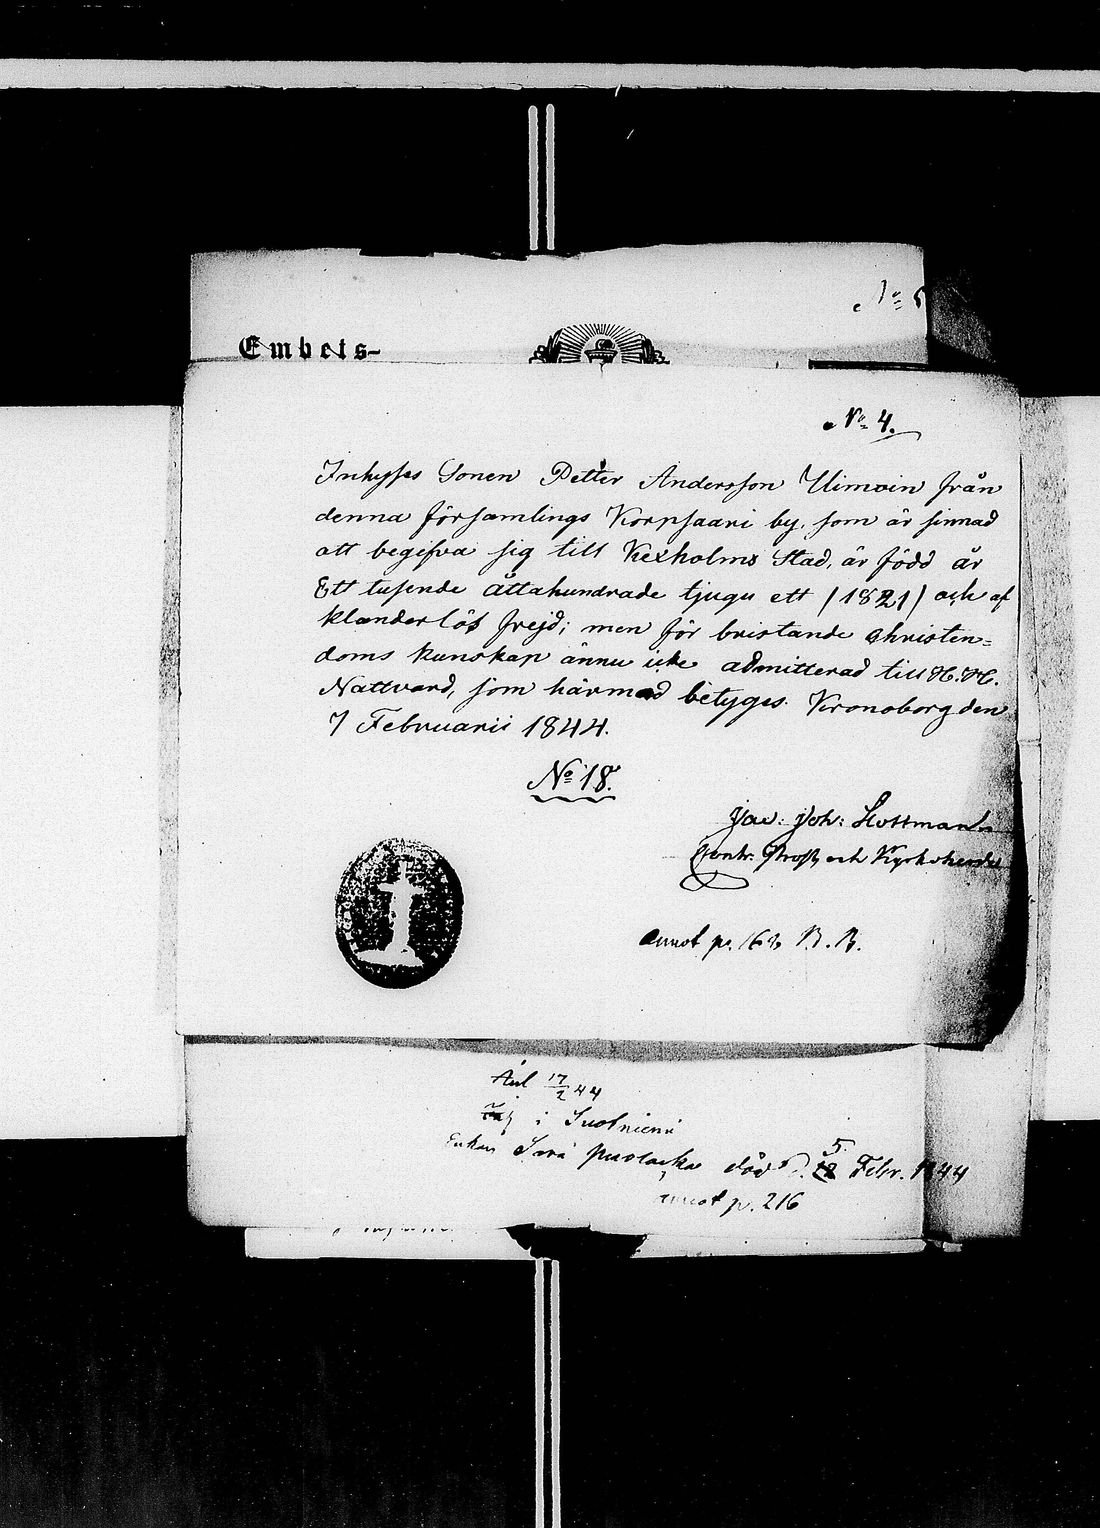 Embets-
No 4.
Inhyses Sonen Petter Andersson Ulmoin från
denna församlings Korpsaari by, som är sinnad
att begifva sig till Kexholms Stad, är född år
Ett tusende åttahundrade tjugu ett /1821/ och af
klanderlös frejd; men för bristande christen=
doms kunskap ännu icke admitterad till H. H.
Nattvard, som härmed betyges. Kronoborg den
7 Februarii 1844.
No 18.
Jac: Joh:
Contr. Prost och Kyrkoherde
annot p. 162 B. B.
17/2 44
i Suotniemi
Enkan död d. 5 Febr. 1844
annot p. 216